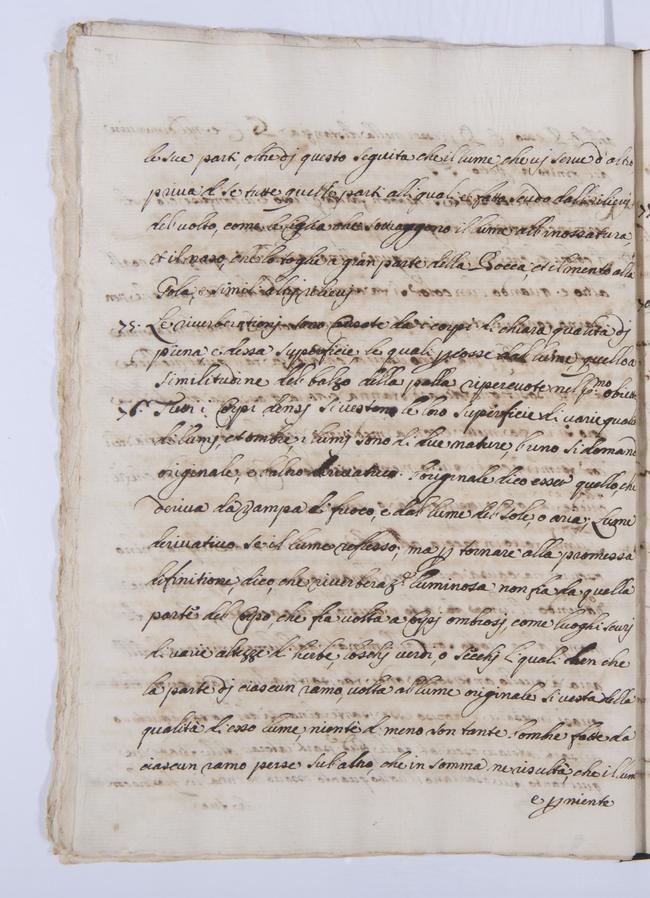 le sue parti, oltre dj questo seguita che il lume che vj serve d'alto
priva di se tutte quelle parti alli quali è fatto scudo dalli rilievj
del volto, come le ciglia che sottraggono il lume all'incassatura,
et il naso, che lo toglie a gran parte della Bocca, et il mento alla
Gola, e simili altrj relievj
75. Le riverberationj sono causate da i corpi di chiara qualità dj
piana e densa superficie le quali percosse dal lume quello a
similitudine del balzo della palla ripercuote nel p.mo obietto
76. Tutti i Corpi densj si vestono le loro superficie di varie qualità
di lumj, et ombre, i lumj sono di due nature l'uno si domanda
originale, e l'altro derivativo. L'originale dico esser quello, che
deriva da Vampa di fuoco, e dal lume del Sole, o aria; Lume
derivativo sia il lume reflesso; ma p tornare alla promessa
definitione, dico, che riverberaz.e luminosa non fia da quella
parte del Corpo, che fia volta a corpj ombrosj, come luoghi scurj
di varie altezze di herbe, boschj verdi, o secchj li quali ben che
la parte dj ciascun ramo, volta al lume originale si vesta della
qualità di esso lume, niente di meno son tante l'ombre fatte da
ciascun ramo perse sul'altro, che in somma ne risulta, che il lum
e p niente